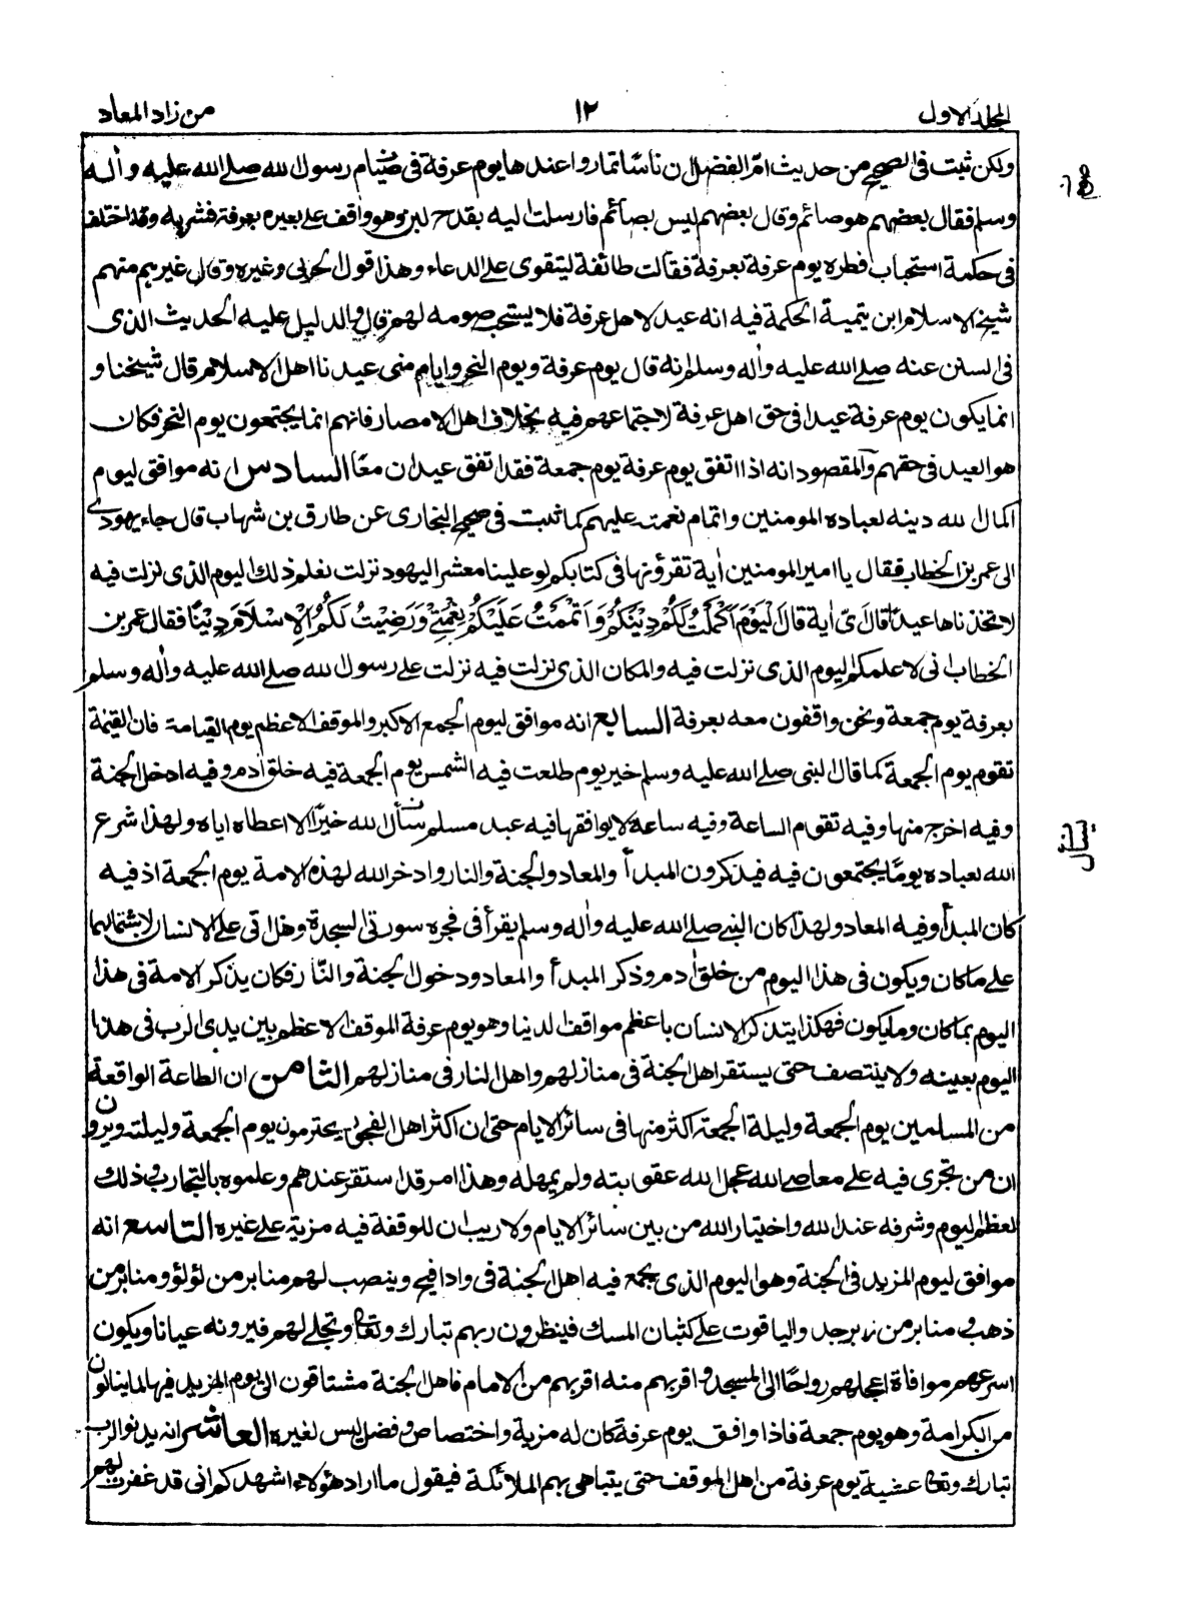 المجلد الاول
١٢
من زاد المعاد
ولكن ثبت فى الصحيح من حديث ام الفضل ان ناسًا تماروا عندها يوم عرفة فى صيام رسول الله صلى الله عليه وأله
وسلم فقال بعضهم هو صائم وقال بعضهم ليس بصائم فارسلت اليه بقدح لبن وهو واقف على بعيره بعرفة فشربه وقد اختلف
فى حكمة استحباب فطره يوم عرفة بعرفة فقالت طائفة ليتقوى على الدعاء وهذا قول الخرقى وغيره وقال غيرهم منهم
شيخ الاسلام ابن تيمية الحكمة فيه انه عيد لاهل عرفة فلا يستحب صومه لهم قال والدليل عليه الحديث الذى
فى السنن عنه صلى الله عليه وأله وسلم انه قال يوم عرفة ويوم النحر وايام منى عيدنا اهل الاسلام قال شيخنا و
انما يكون يوم عرفة عيدا فى حق اهل عرفة لاجتماعهم فيه بخلاف اهل الامصار فانهم انما يجتمعون يوم النحر فكان
هو العيد فى حقهم والمقصود انه اذا اتفق يوم عرفة يوم جمعة فقد اتفق عيدان معًا السادس انه موافق ليوم
اكمال الله دينه لعباده المومنين واتمام نعمته عليهم كما ثبت فى صحيح البخارى عن طارق بن شهاب قال جاء يهودى
الى عمر بن الخطاب فقال يا امير المومنين أية تقرؤنها فى كتابكم لو علينا معشر اليهود نزلت نعلم ذلك اليوم الذى نزلت فيه
لاتخذناها عيدًا قال اىّ أية قال اَلْيَوْمَ اَكْمَلْتُ لَكُمْ دِيْنَكُمْ وَاَتْمَمْتُ عَلَيْكُمْ نِعْمَتِيْ وَرَضِيْتُ لَكُمُ الْاِسْلَامَ دِيْنًا فقال عمر بن
الخطاب انى لاعلم اليوم الذى نزلت فيه والمكان الذى نزلت فيه نزلت على رسول الله صلى الله عليه وأله وسلم
بعرفة يوم جمعة ونحن واقفون معه بعرفة السابع انه موافق ليوم الجمع الاكبر والموقف الاعظم يوم القيامة فان القيمة
تقوم يوم الجمعة كما قال النبى صلى الله عليه وسلم خير يوم طلعت فيه الشمس يوم الجمعة فيه خلق أدم وفيه ادخل الجنة
وفيه اخرج منها وفيه تقوم الساعة وفيه ساعة لا يوافقها فيه عبد مسلم يسأل الله خيرًا الا اعطاه اياه ولهذا شرع
الله لعباده يومًا يجتمعون فيه فيذكرون المبدأ والمعاد والجنة والنار وادخر الله لهذه الامة يوم الجمعة اذ فيه
كان المبدأ وفيه المعاد ولهذا كان النبى صلى الله عليه وأله وسلم يقرأ فى فجره سورتى السجدة وهل اتى على الانسان لاشتمالهما
على ما كان ويكون فى هذا اليوم من خلق أدم وذكر المبدأ والمعاد ودخول الجنة والنار فكان يذكر الامة فى هذا
اليوم بما كان وما يكون فهكذا يتذكر الانسان باعظم مواقف الدنيا وهو يوم عرفة الموقف الاعظم بين يدى الرب فى هذا
اليوم بعينه ولا ينتصف حتى يستقر اهل الجنة فى منازلهم واهل النار فى منازلهم الثامن ان الطاعة الواقعة
من المسلمين يوم الجمعة وليلة الجمعة اكثر منها فى سائر الايام حتى ان اكثر اهل الفجور يحترمون يوم الجمعة وليلته ويرون
ان من تجرى فيه على معاصى الله عجل الله عقوبته ولم يمهله وهذا امر قد استقر عندهم وعلموه بالتجارب وذلك
لعظم اليوم وشرفه عند الله واختيار الله من بين سائر الايام ولا ريب ان للوقفة فيه مزية على غيره التاسع انه
موافق ليوم المزيد فى الجنة وهو اليوم الذى يجمع فيه اهل الجنة فى واد افيح وينصب لهم منابر من لؤلؤ ومنابر من
ذهب ومنابر من زبرجد والياقوت على كثبان المسك فينظرون ربهم تبارك وتعالى وتجلى لهم فيرونه عيانا ويكون
اسرعهم موافاة اعجلهم رواحًا الى المسجد واقربهم منه اقربهم من الامام فاهل الجنة مشتاقون الى يوم المزيد فيها لما ينالون
من الكرامة وهو يوم جمعة فاذا وافق يوم عرفة كان له مزية واختصاص وفضل ليس لغيره العاشر انه يدنو الرب
تبارك وتعالى عشية يوم عرفة من اهل الموقف حتى يتباهى بهم الملائكة فيقول ما اراد هؤلاء اشهدكم انى قد غفرت لهم
يسأل